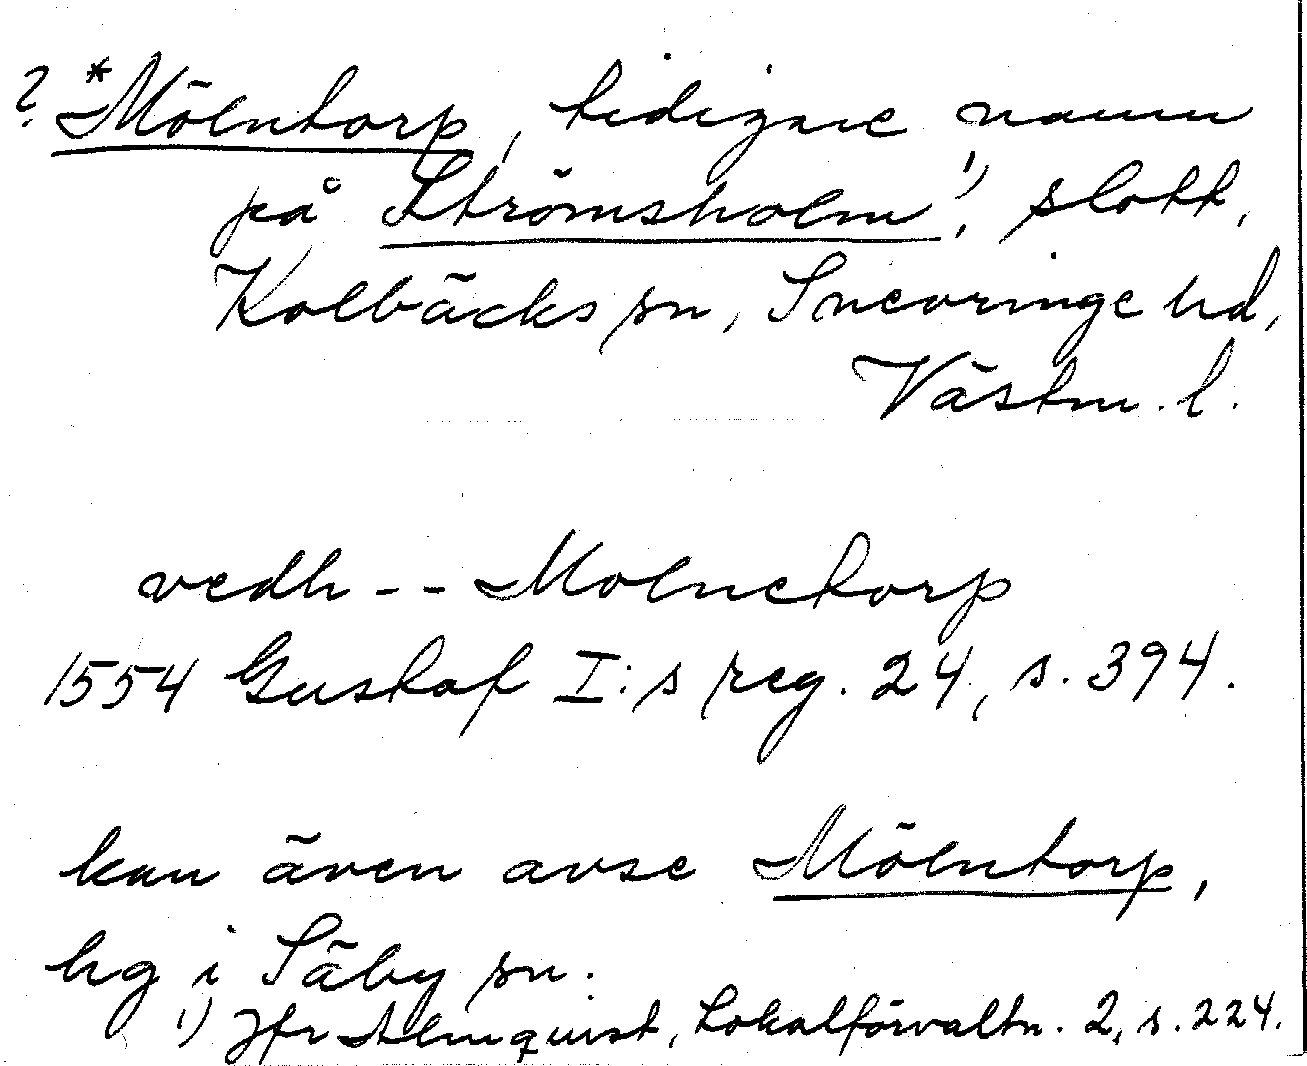 ? *Mölntorp, tidigare namn
på Strömsholm¹⁾, slott,
Kolbäcks sn, Snevringe hd,
Västm. l.
vedh -- Molnetorp
1554 Gustaf I:s reg. 24, s. 394.
kan även avse Mölntorp,
hg i Säby sn.
¹⁾ Jfr Almquist, Lokalförvaltn. 2, s. 224.